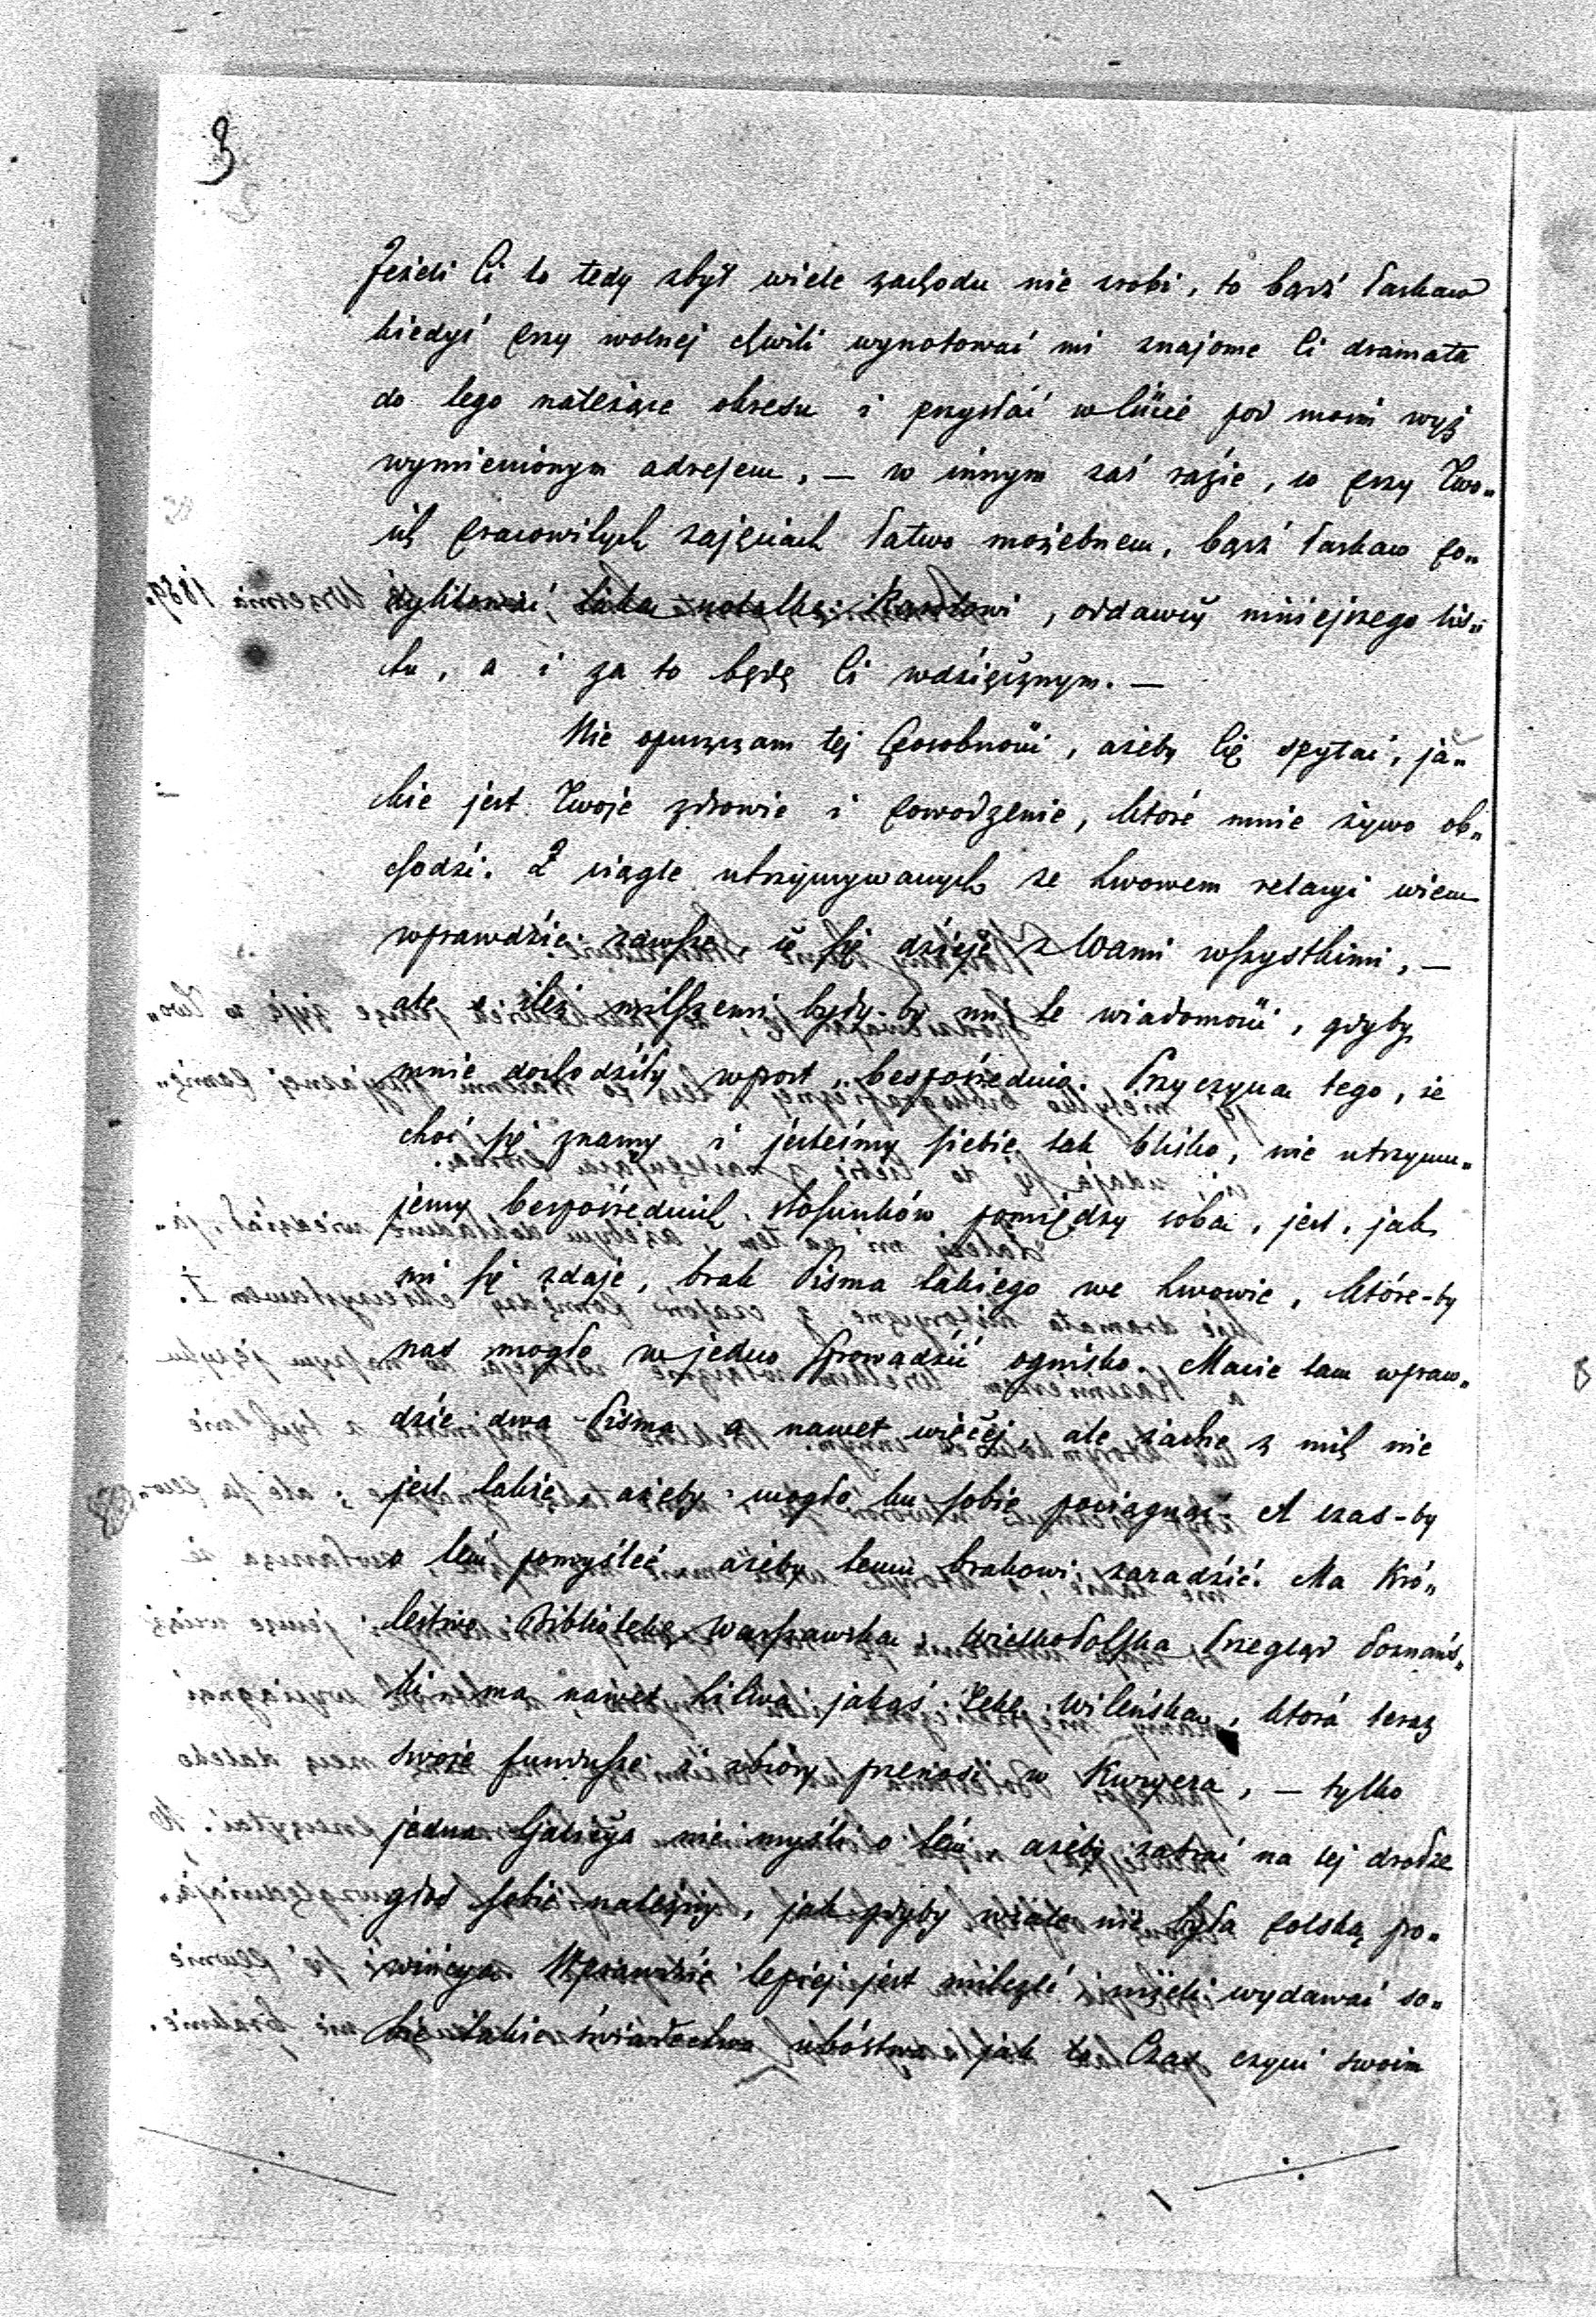 3
Jeżeli Ci to tedy zbyt wiele zachodu nie zrobi, to bądź łaskaw
kiedyś przy wolnej chwili wynotować mi znajome Ci dramata
do tego należące okresu i przysłać w liście pod moim wyż
wymienionym adresem, — w innym zaś razie, co przy Two„
ich pracowitych zajęciach łatwo możebnem, bądź łaskaw po„
dyktować taką notatkę Karolowi, oddawcy niniejszego lis„
tu, a i za to będę Ci wdzięcznym. —
Nie opuszczam tej sposobności, ażeby Cię spytać, ja„
kie jest Twoje zdrowie i powodzenie, które mnie żywo ob„
chodzi. Z ciągle utrzymywanych ze Lwowem relacyi wiem
wprawdzie zawsze, co się dzieje z Wami wszystkimi, —
ale o ileż milszemi były-by mi te wiadomości, gdyby
mnie dochodziły wprost, bezpośrednio. Przyczyna tego, że
choć się znamy i jesteśmy siebie tak blisko, nie utrzymu„
jemy bezpośrednich stosunków pomiędzy sobą, jest, jak
mi się zdaje, brak Pisma takiego we Lwowie, które-by
nas mogło w jedno sprowadzić ognisko. Macie tam wpraw„
dzie dwa Pisma a nawet więcej, ale żadne z nich nie
jest takie, ażeby mogło ku sobie pociągnąć. A czas-by
o tém pomyśleć, ażeby temu brakowi zaradzić. Ma Kró„
lestwo Bibliotekę Warszawską, Wielkopolska Przegląd Poznańs„
ki, ma nawet Litwa jakąś Tekę Wileńską, która teraz
swoje fundusze i zbiory przenosi w Kuryera, — tylko
jedna Galicya nie myśli o tém, ażeby zabrać na tej drodze
głos sobie należny, jak gdyby wcale nie była polską pro„
wincyą. Wprawdzie lepiej jest milczeć, niżeli wydawać so„
bie takie świadectwo ubóstwa jak to Czas czyni swoim